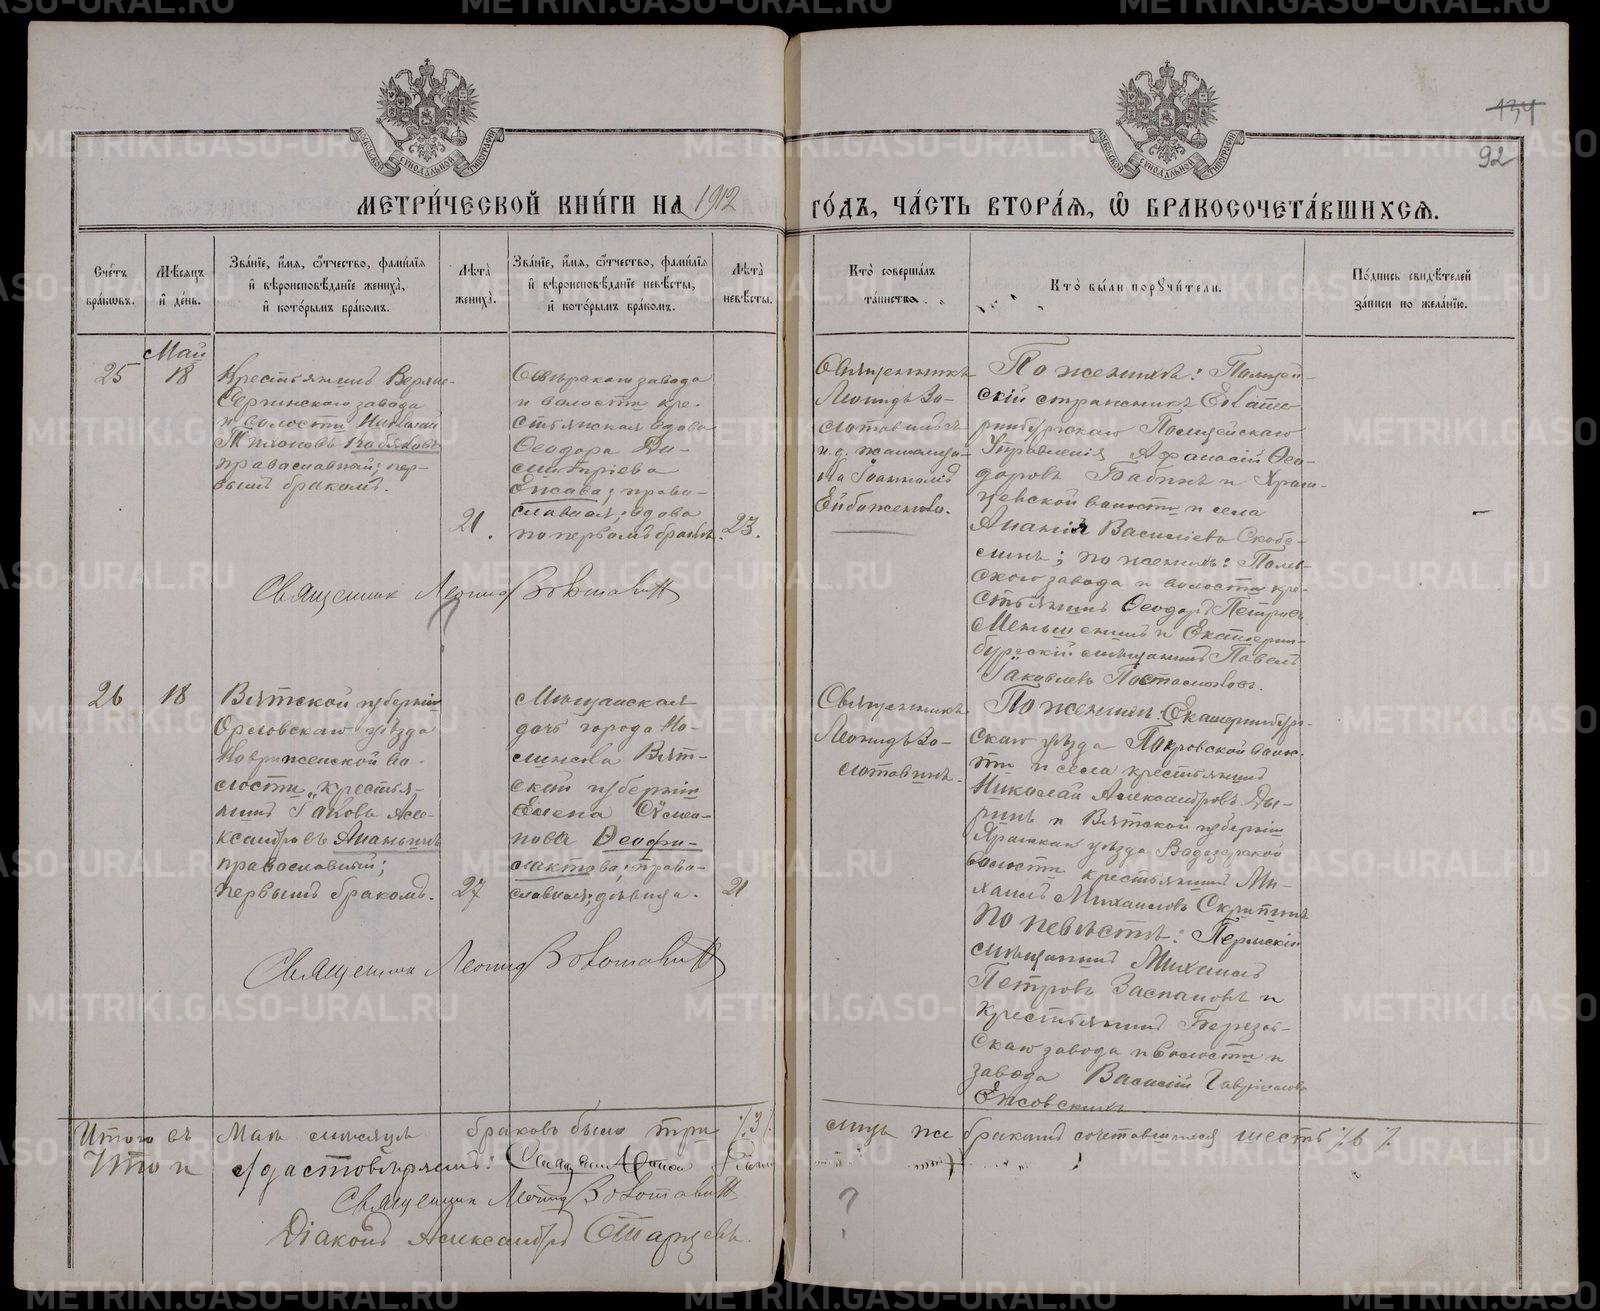 134
92
МЕТРИ́ЧЕСКОЙ КНИ́ГИ НА 1912 ГО́ДЪ, ЧА́СТЬ ВТОРА́Я, Ѡ БРАКОСОЧЕТА́ВШИХСЯ.
Сче́тъ бра́ковъ.
Мѣ́сяцъ и де́нь.
Зва́нїе, и́мя, ѻ́тчество, фами́лїя
и҆ вѣроисповѣ́данїе жениха̀,
и҆ кото́рымъ бра́комъ.
Лѣта̀ жениха̀.
Зва́нїе, и́мя, ѻ́тчество, фами́лїя
и҆ вѣроисповѣ́данїе невѣ́сты,
и҆ кото́рымъ бра́комъ.
Лѣта̀ невѣ́сты.
Кто̀ соверша́лъ
та́инство.
Кто̀ бы́ли порꙋчи́тели.
По́дпись свидѣ́телей
за́писи по жела́нїю.
25
Май
18
Крестьянинъ Верхне-
Сергинскаго завода
и волости Николай
Тихоновъ
православный; пер-
вымъ бракомъ.
21.
завода
и волости кре-
стьянская вдова
Ѳеодора Ди-
митріева
право-
славная; вдова
по первомъ бракѣ.
23.
Священникъ
Леонидъ Зо-
лотавинъ
и. д. псаломщи-
ка Іоанникій
По женихѣ: Полицей-
скій стражникъ Екате-
ринбургскаго Полицейскаго
Управленія Аѳанасій Ѳео-
доровъ Бабинъ и Храм-
цовской волости и села
Ананія Василіевъ Скобе-
линъ; по женихѣ:
завода и волости кре-
стьянинъ Ѳеодоръ Петровъ
Меньшенинъ и Екатерин-
бургскій мѣщанинъ Павелъ
Іаковлевъ
Священникъ Леонид Золотавинъ
26
18
Вятской губерніи
Орловскаго уѣзда
во-
лости, крестья-
нинъ Іаковъ Але-
ксандровъ Ананьинъ
православный;
первымъ бракомъ.
27
Мѣщанская
дочь города Но-
линска Вят-
ской губерніи
Елена Стѣфа-
нова Ѳеофи-
лактова; право-
славная; дѣвица.
21
Священникъ
Леонидъ Зо-
лотавинъ.
По женихѣ: Екатеринбург-
скаго уѣзда Покровской волос-
ти и села крестьянинъ
Николай Александровъ Ды-
ринъ и Вятской губерніи
Яранскаго уѣзда
волости крестьянинъ Ми-
хаилъ Михаиловъ Скрипинъ
По невѣстѣ: Пермскій
мѣщанинъ Михаилъ
Петровъ Заспановъ и
крестьянинъ Березов-
скаго завода и волости и
завода Василій Гавріиловъ
Елисовскихъ.
Священникъ Леонид Золотавинъ
Итого въ Маѣ мѣсяцѣ браковъ было три /3/ лицъ же бракомъ сочетавшихся шесть /6/
Что и удостовѣряемъ:
Священникъ Леонид Золотавинъ
Діаконъ Александръ Старцевъ.
?